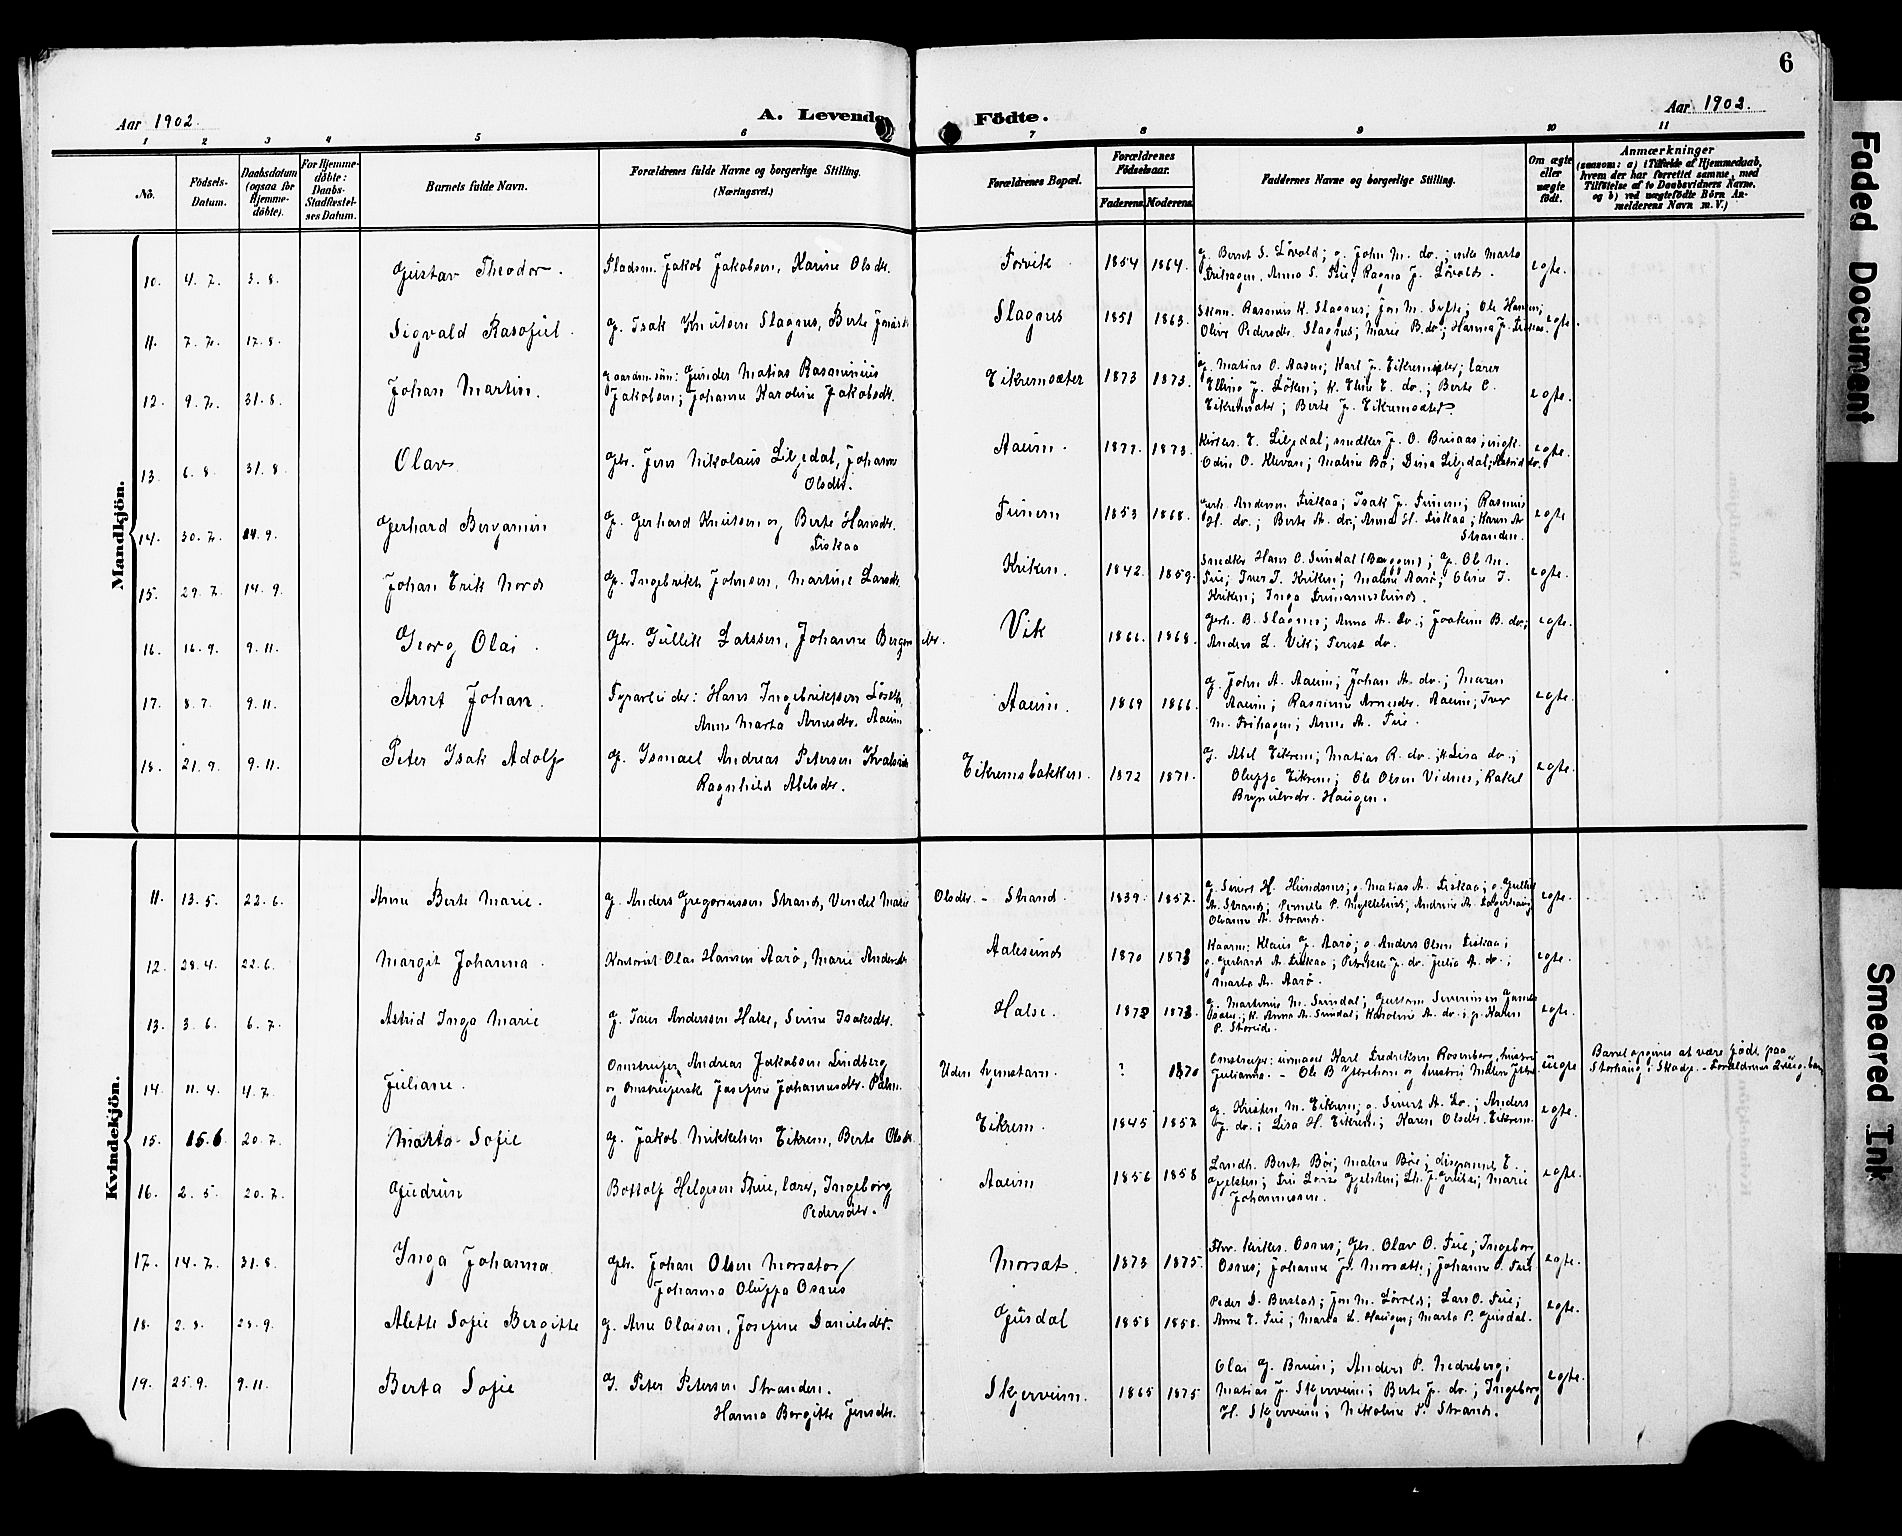 6
Aar 1902.
A. Levende
Födte.
Aar 1902.
1 2 3 4 5 6 7 8 9 10 11
No.
Födsels-Datum.
Daabsdatum (ogsaa for Hjemme-döbte).
For Hjemme-döbte: Daabs-Stadfæstel-ses Datum.
Barnets fulde Navn.
Forældrenes fulde Navne og borgerlige Stilling. (Næringsvei.)
Forældrenes Bopæl.
Forældrenes Födselsaar.
Faderens. Moderens.
Faddernes Navne og borgerlige Stilling.
Om ægte eller uægte födt.
Anmærkninger
(saasom: a) i Tilfælde af Hjemmedaab, hvem der har forrettet samme, med Tilföielse af to Daabsvidners Navne, og b) ved uægtefödte Börn An-melderens Navn m. V.)
Mandkjön.
10. 4. 7. 3. 8. Gustav Theodor. Pladsm. Jakob Jakobsen, Karine Olsdtr. Torvik 1854 1864. g. Bernt S. Lövold; g. John M. do.; enke Marta
Frihagen, Anna S. Frie, Ragna J. Lövold. egte.
11. 7. 7. 17. 8. Sigvald Rasofiel. g. Isak Knutsen Slagnes, Berte Jonasdtr. Slagnes 1851 1863. Skom. Rasmus K. Slagnes; Jon M. Sylte; Ole Hansen;
Olive Pedersdtr. Slagnes; Marie B. do.; Hanna J. egte.
12. 9. 7. 31. 8. Johan Martin. Gaardm. søn: Gunder Matias Rasminius
Jakobsen; Johanne Karoline Jakobsdtr. Eikremsæter 1873 1873. g. Matias O. Aasen; Karl J. Eikremsæter; lærer
Elling J. Löken; K. Eline E. do.; Berte O.
Eikremsæter; Berte J. Eikremsæter. egte.
13. 6. 8. 31. 8. Olav Gbr. Jens Nikolaus Liljedal, Johanne
Olsdtr. Aaeim. 1877. 1873. Kirkes. E. Liljedal; snedker J. O. Brusaas; ungk.
Odin O. Klevan; Maline Bö; Dina Liljedal; Astrid do. egte.
14. 30. 7. 14. 9. Gerhard Benjamin g. Gerhard Knutsen og Berte Hansdtr.
Fiskaa Tunem 1853 1868. Gerh. Andersen Fiskaa; Isak J. Tunem; Rasmus
H. do.; Berte A. do; Anna H. Fiskaa; Karen A.
Stranden. egte
15. 29. 7. 14. 9. Johan Erik Nord g. Ingebrikt Johnsen, Martine Larsdtr. Kriken. 1842. 1859. Snedker Hans O. Sundal (Bergen); g. Ole M.
Frie; Iver I. Kriken; Maline Aarö; Oline I.
Kriken; Inga Frimannslund. egte.
16. 16. 9. 9. 11. Georg Olai. Gbr. Gullik Larssen, Johanne Bergen dtr. Vik 1866. 1868. Gerh. B. Slagnes; Anna A. do.; Joakim B. do.;
Anders L. Vik; Terese do. egte.
17. 8. 7. 9. 11. Arnt Johan. Fyrarbeider: Hans Ingebriktsen Löseth,
Anne Marta Arnesdtr. Aaeim Aaeim. 1869 1866. g. John A. Aaeim; Johan A. do.; Maren
Aaeim; Rasmine Arnesdtr. Aaeim; Iver
M. Frihagen; Anne A. Frie. egte.
18. 21. 9. 9. 11. Peter Isak Adolf g. Ismael Andreas Petersen Kvalsvik
Ragnhild Abelsdtr. Eikremsbakken. 1872 1871. g. Abel Eikrem; Matias R. do.; K. Lisa do.;
Oluffa Eikrem; Ole Olsen Vidnes; Rakel
Brynulvsdr. Haugen. egte.
Kvindekjön.
11. 13. 5. 22. 6. Anne Berte Marie. g. Anders Gregoriussen Strand, Vendel Marie Olsdtr. - Strand. 1839. 1857. g. Sivert H. Hundsnes; g. Matias A. Fiskaa; g. Gullik
A. Strand; Pernille P. Myklebust; Andrine A. Lagerhaug
Oleanne A. Strand. egte.
12. 28. 4. 22. 6. Margit Johanna. Kontorist Olai Hansen Aarö, Marie Andersdtr Aalesund 1870 1873 Kaarm. Klaus J. Aarö; g. Anders Olsen Fiskaa;
g. Gerhard A. Fiskaa; Petrikke J. do. Julia A. do.;
Marta A. Aarö. egte.
13. 3. 6. 6. 7. Astrid Inga Marie g. Iver Anderssen Halse, Serine Isaksdtr. Halse. 1872 1873. g. Martinus M. Sundal; Guttorm Severinsen
K. Anna A. Sundal; Karoline A. do.; p. Karen
P. Storeide. egte.
14. 11. 4. 4. 7. Juliane. Omstreifer Andreas Jakobsen Lindberg
og Omstreiferske Josefine Johannesdtr. Palm. Uden hjemstavn. ? 1870 Omstreifer: urmager Karl Fredriksen Rosenberg, hustru
Julianna. - Ole B. Ytrehorn og hustru Malene uegte Barnet opgives at være födt paa
Storhaug i Skodje. - Forældrenes 2. uegte barn
15. 15. 6 20. 7. Marta Sofie g. Jakob Mikkelsen Eikrem, Berte Olsdtr Eikrem. 1845 1857 g. Kristen M. Eikrem; g. Sivert A. do.; Anders
J. do.; Lisa H. Eikrem; Karen Olsdtr. Eikrem. egte.
16. 2. 5. 20. 7. Gudrun Bottolf Helgesen Thue, lærer, Ingeborg
Pedersdtr. Aaeim 1856 1858 Landh. Bernt Böe; Maline Böe; disponent E.
Gjelsten; Fru Lovise Gjelsten; Marie
Johannesen. egte.
17. 14. 7. 31. 8. Inga Johanna Gbr. Johan Olsen Morsæter/
Johanna Oluffa Osnes Morsæt. 1873 1875. Osnes; Gbr. Olav O. Frie; Ingeborg
Osnes; Johanne J. Morsæth; Johanne O. Frie egte.
18. 2. 8. 28. 9. Alette Sofie Bergitte g. Arne Olaisen, Josefine Danielsdtr. Gjusdal 1858 1858. Peder D. Berstad; Jon M. Lövold; Lars O. Frie;
Anne E. Frie; Marta L. Haugen; Marta P. Gjusdal. egte.
19. 25. 9. 9. 11. Berta Sofie g. Peter Petersen Stranden.
Hanna Bergitte Jensdtr. Skjerveim. 1865 1875 Olai J. Bruun; Anders P. Nedreberg;
Matias J. Skjerveim; Berte J. do.; Ingeborg
H. Skjerveim; Nikoline P. Strand. egte.
Faded Document
Smeared Ink